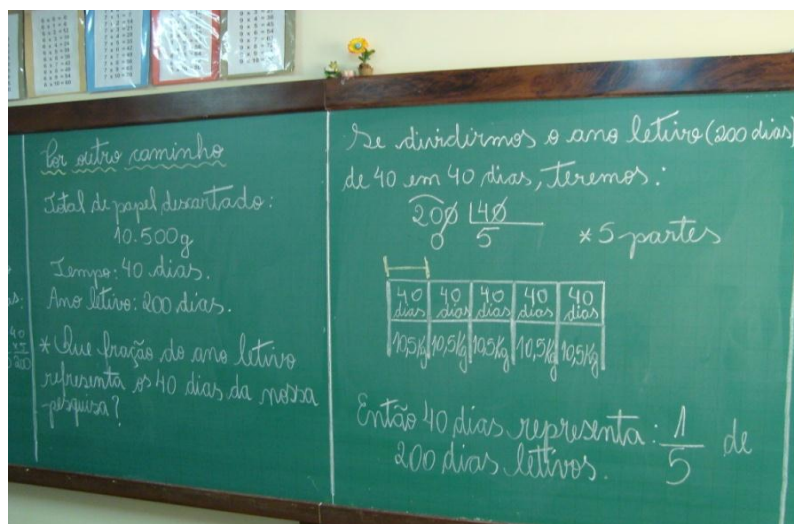 Por outro caminho
Total de papel descartado:
10.500g
Tempo: 40 dias.
Ano letivo: 200 dias.
* Que fração do ano letivo
representa os 40 dias da nossa
pesquisa?
Se dividirmos o ano letivo (200 dias)
de 40 em 40 dias, teremos:
200 40
0 5 * 5 partes
40 40 40 40 40
dias dias dias dias dias
10,5Kg 10,5Kg 10,5Kg 10,5Kg 10,5Kg
Então 40 dias representa: 1/5 de
200 dias letivos.